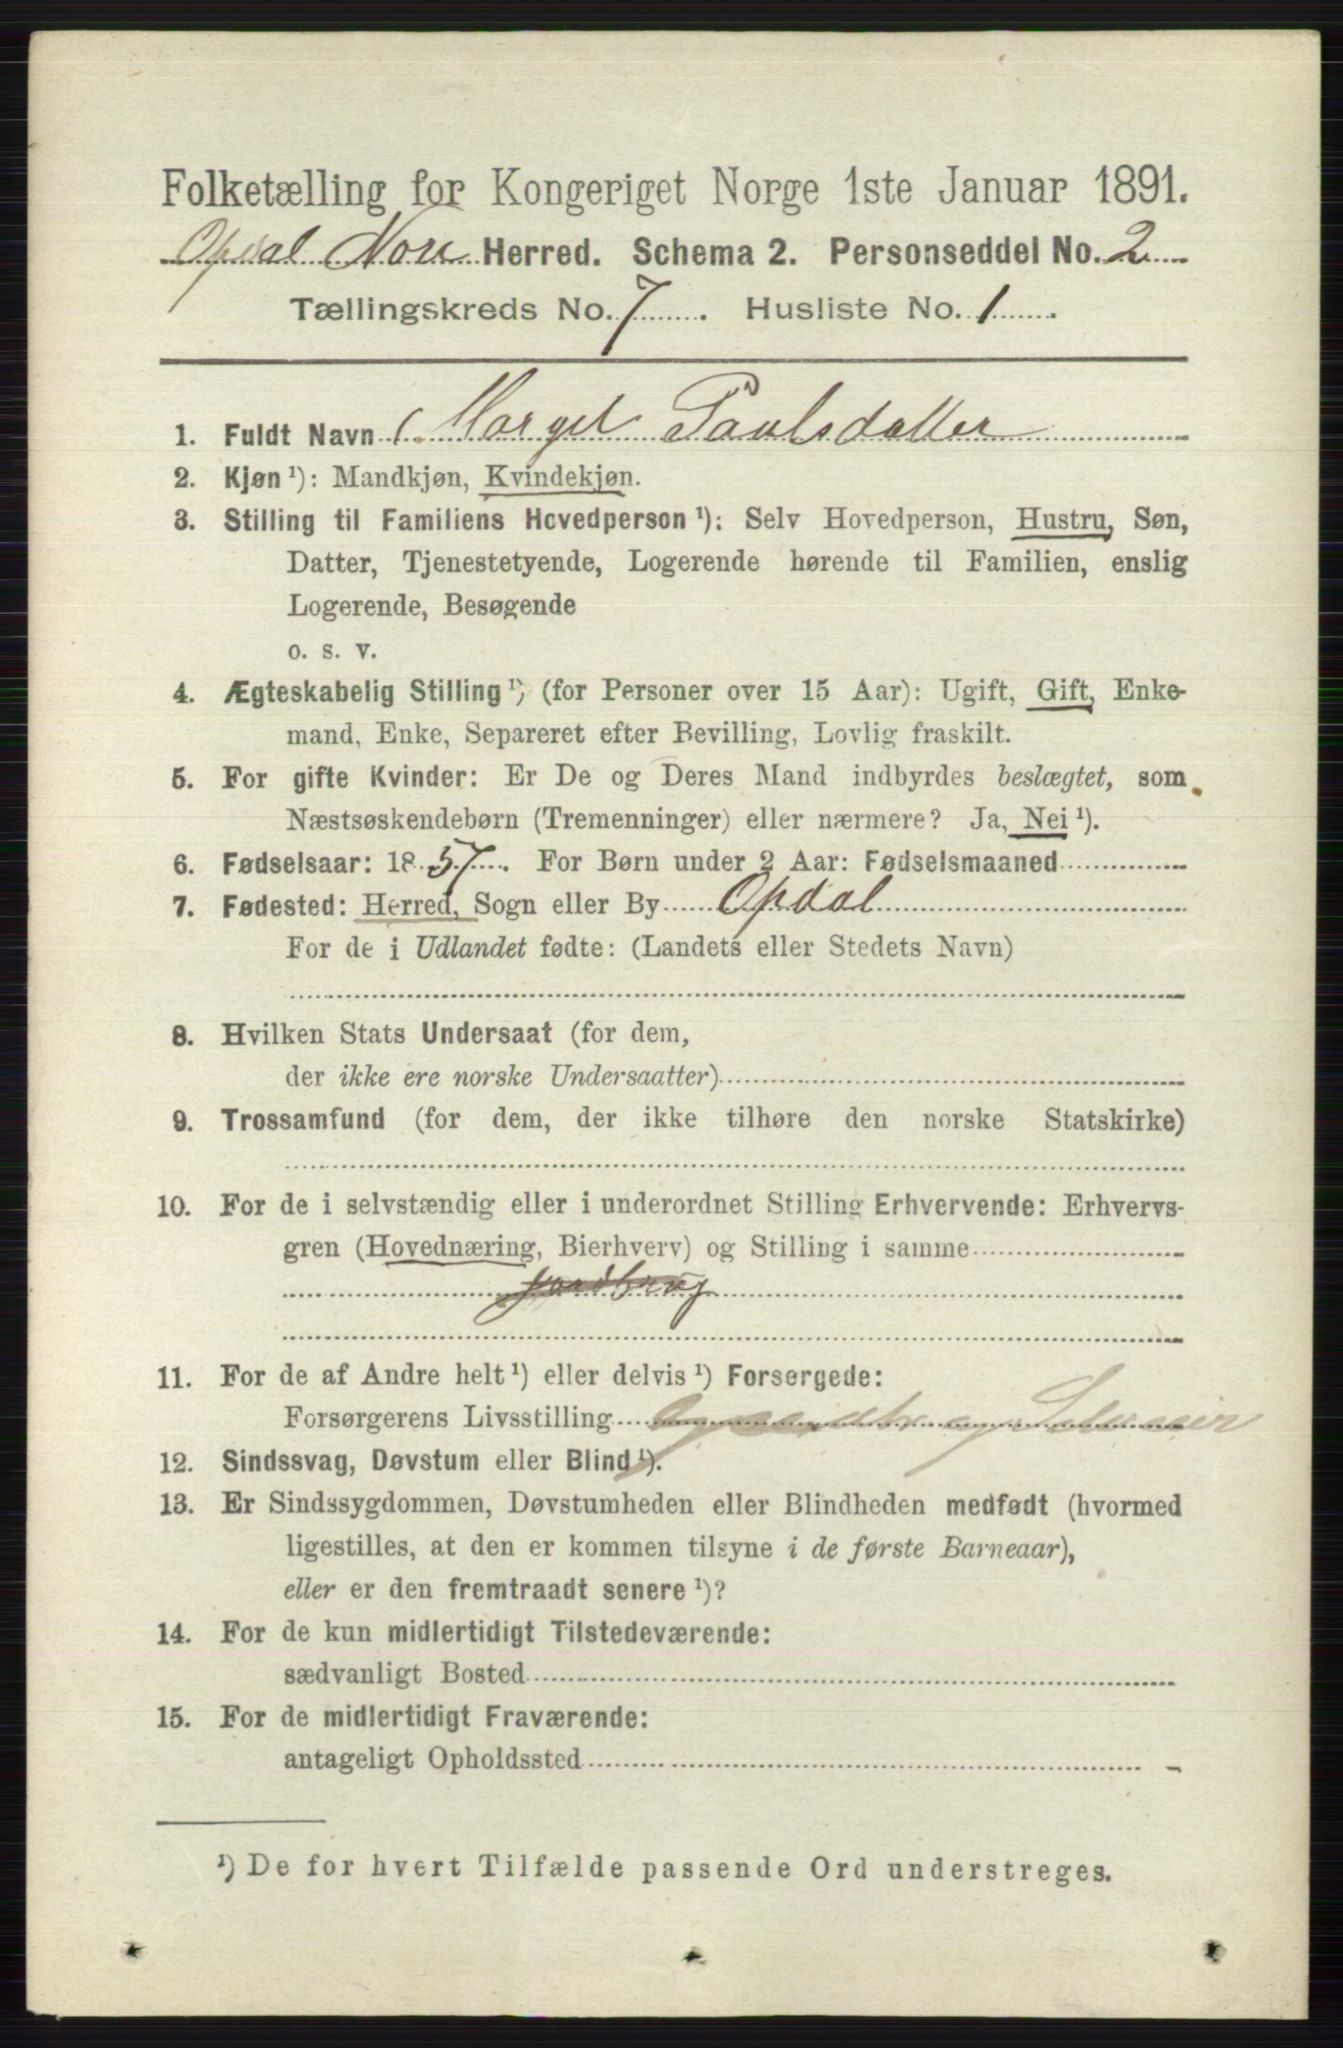 Folketælling for Kongeriget Norge 1ste Januar 1891.
Opdal Nore Herred. Schema 2. Personseddel No. 2
Tællingskreds No. 7. Husliste No. 1.
1. Fuldt Navn Margit Paulsdatter
2. Kjøn ¹): Mandkjøn, Kvindekjøn.
3. Stilling til Familiens Hovedperson ¹): Selv Hovedperson, Hustru, Søn,
Datter, Tjenestetyende, Logerende hørende til Familien, enslig
Logerende, Besøgende
o. s. v.
4. Ægteskabelig Stilling ¹) (for Personer over 15 Aar): Ugift, Gift, Enke-
mand, Enke, Separeret efter Bevilling, Lovlig fraskilt.
5. For gifte Kvinder: Er De og Deres Mand indbyrdes beslægtet, som
Næstsøskendebørn (Tremenninger) eller nærmere? Ja, Nei ¹).
6. Fødselsaar: 1857. For Børn under 2 Aar: Fødselsmaaned
7. Fødested: Herred, Sogn eller By Opdal
For de i Udlandet fødte: (Landets eller Stedets Navn)
8. Hvilken Stats Undersaat (for dem,
der ikke ere norske Undersaatter)
9. Trossamfund (for dem, der ikke tilhøre den norske Statskirke)
10. For de i selvstændig eller i underordnet Stilling Erhvervende: Erhvervs-
gren (Hovednæring, Bierhverv) og Stilling i samme
Jordbrug
11. For de af Andre helt ¹) eller delvis ¹) Forsørgede:
Forsørgerens Livsstilling
12. Sindssvag, Døvstum eller Blind ¹).
13. Er Sindssygdommen, Døvstumheden eller Blindheden medfødt (hvormed
ligestilles, at den er kommen tilsyne i de første Barneaar),
eller er den fremtraadt senere ¹)?
14. For de kun midlertidigt Tilstedeværende:
sædvanligt Bosted
15. For de midlertidigt Fraværende:
antageligt Opholdssted
¹) De for hvert Tilfælde passende Ord understreges.